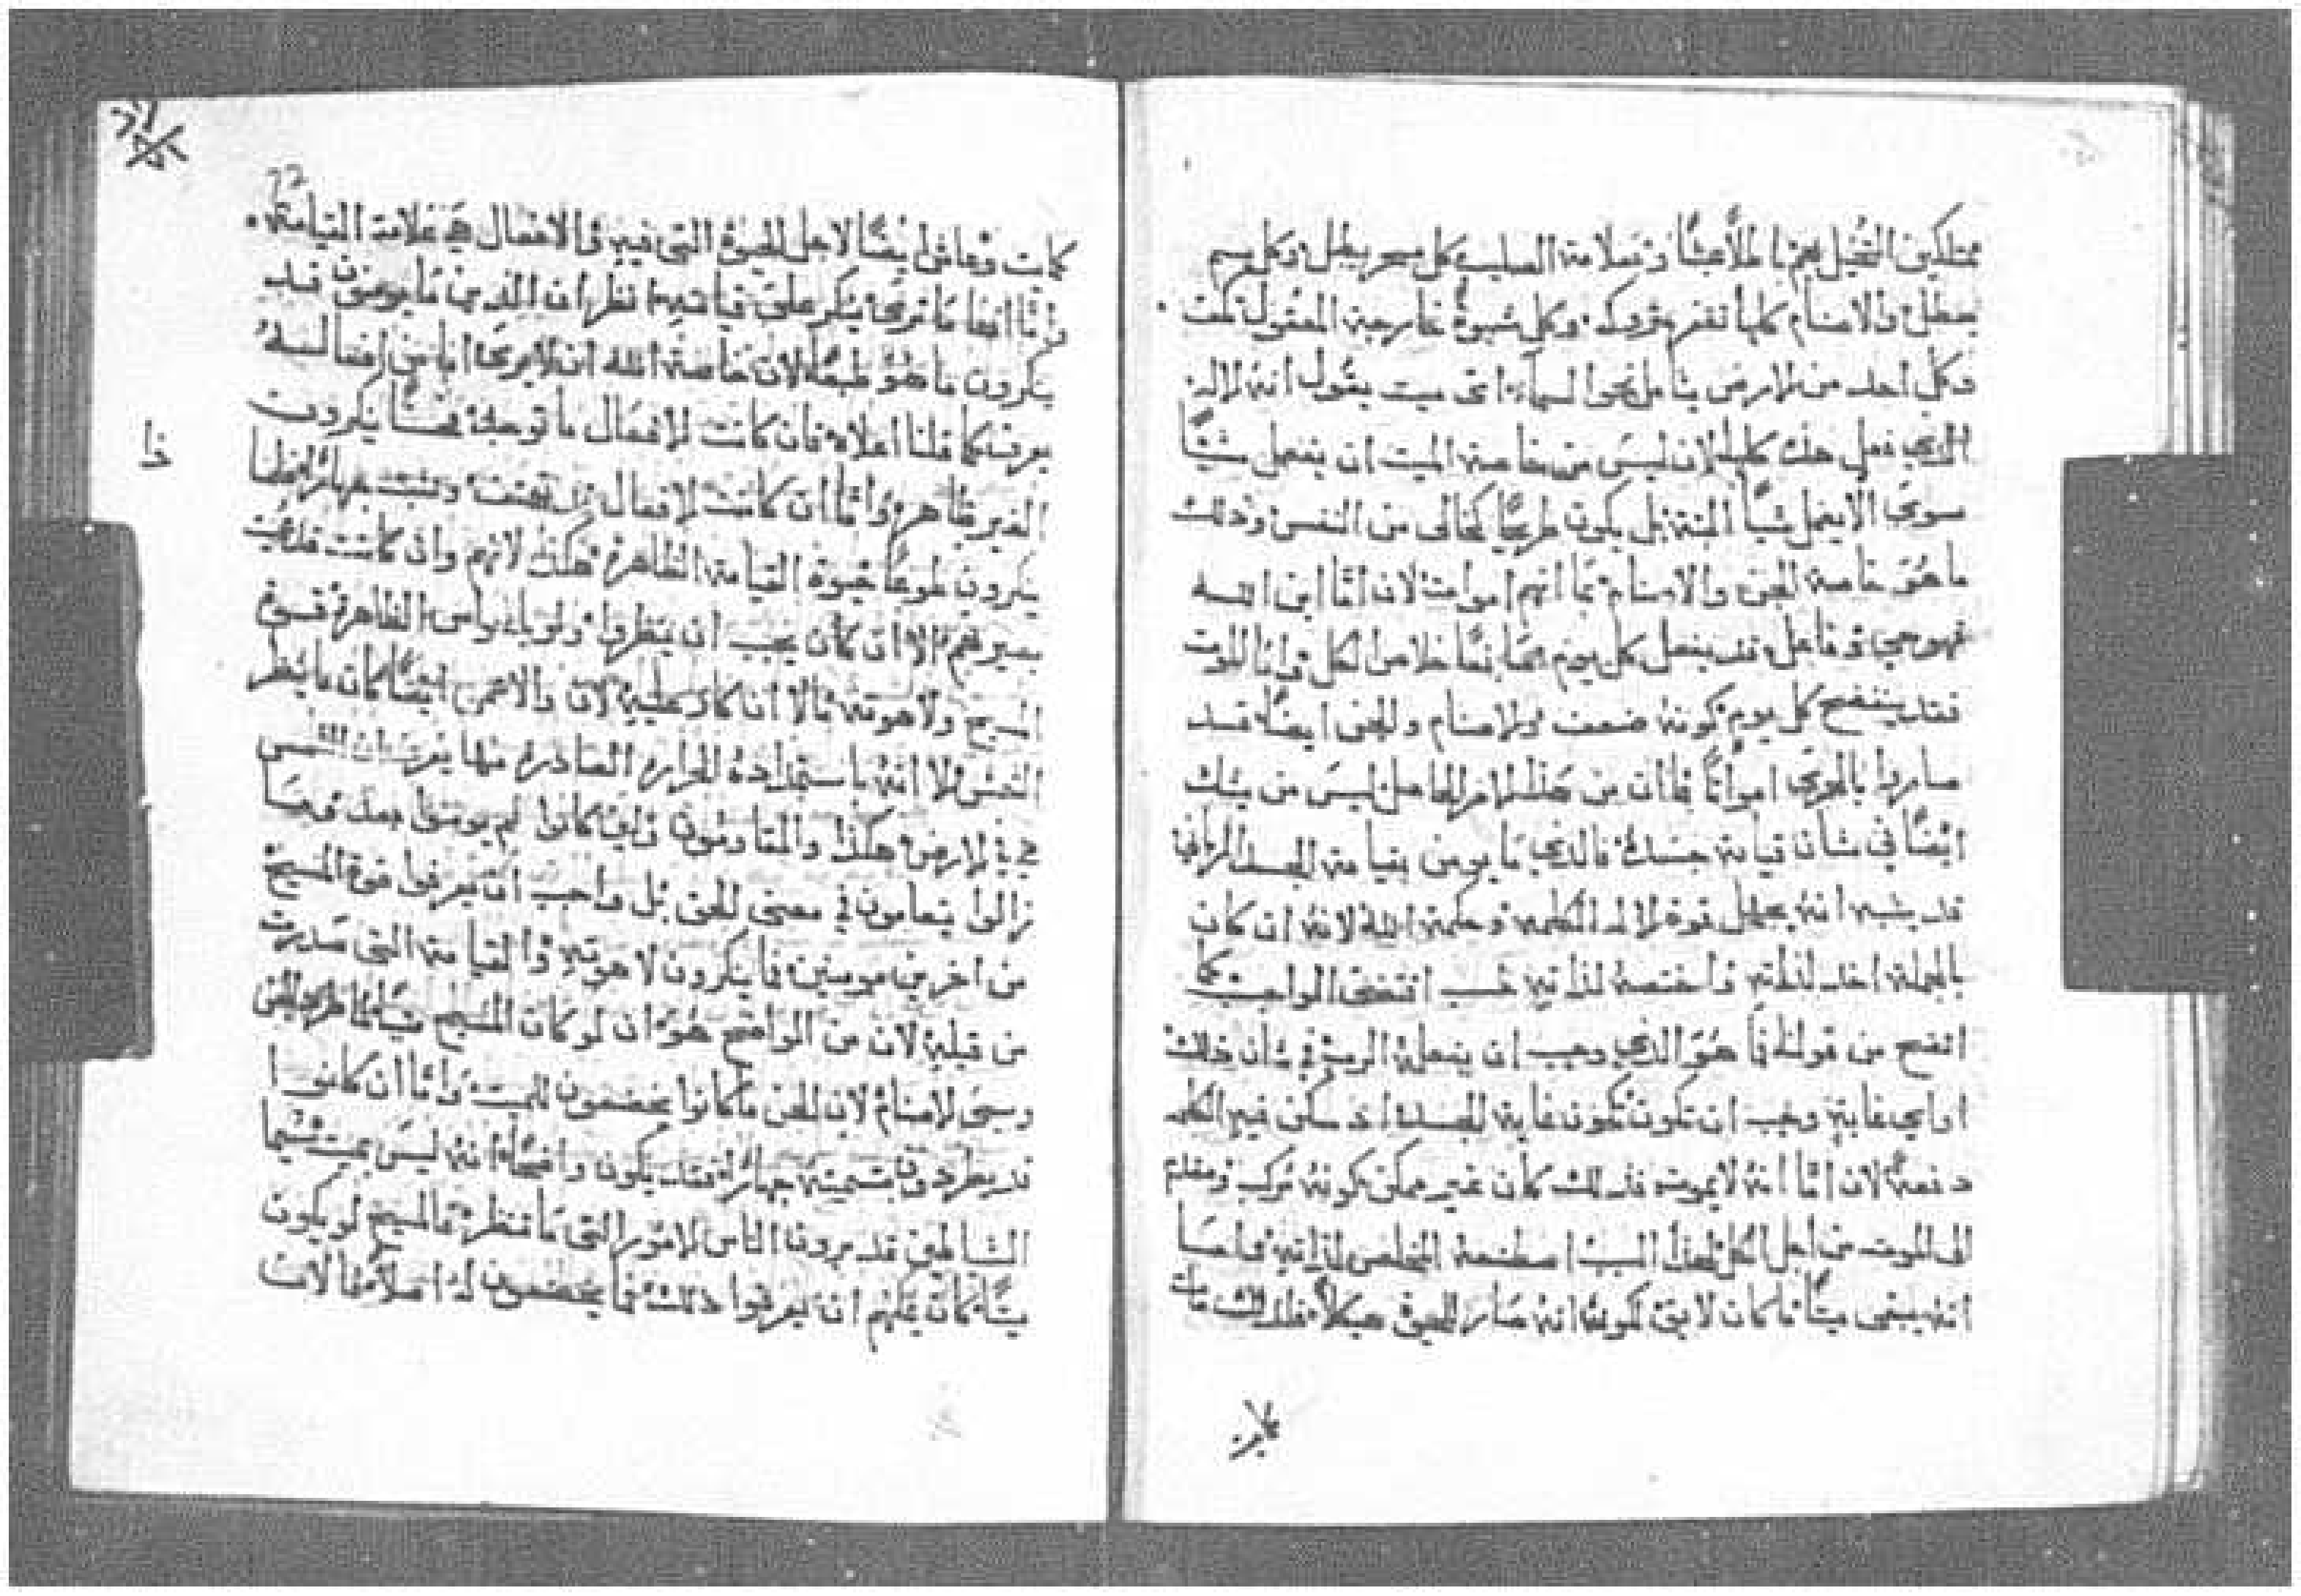 ممتلكين التخيل بهم باطلاً عبثاً وبسلامة الصليب كل سحر يبطل وكل رسم
يبطل والاصنام كلها تقفر متروكه وكل شهوة خارجة المعقول تمت
وكل احد من الارض يتامل نحوا السماء اى ميت يقول انه لاله
الذي فعل هذا كله لان ليس من خاصة الميت ان يفعل شيئاً
سوى الا يفعل شيئاً البتة بل يكون طريحاً كخالى من النفس وذلك
ما هو خاصة الجن والاصنام بما انهم اموات لان اما ابن الله
فهو حي وفاعل قد يفعل كل يوم خلاص الكل واما الموت
فقد يفتضح كل يوم كونه ضعف والاصنام والجن ايضاً قد
صاروا بالحرى امواتاً فاان من هذا الامر الحاصل ليس من يشك
ايضاً في شان قيامة جسده فالذي ما يومن بقيامة الجسد الرباني
قد يشبه انه يجهل قوة الاله الكلمه وحكمة الله لانه ان كان
بالجملة اخذ لذاته واختصه لذاته حسب اقتضى الواجب كما
اتضح من قولنا فا هو الذي وجب ان يفعله الرب في شان ذلك
او اي غاية وجب ان تكون تكون غاية الجسد اذ سكن فيه الكلمه
دفعة لان اما انه لا يموت فذلك كان غير ممكن كونه مركب ومقدم
الى الموت من اجل الكل لهذا السبب اصطنعه المخلص لذاته واما
انه يبقى ميتاً ما كان لايق كونه انه صار للحيوة هيكلاً فلذلك مات
72
كمايت وعاش ايضاً لاجل الحيوة التى فيه والافعال هي علامة القيامة
واما انها ما ترى ينكر على قيامته انظر ان الذين ما يومنون قد
ينكرون ما هو طبعاً لان خاصة الله ان لا يرى اما من افعاله
يعرف كما قلنا اعلاه فان كانت الافعال ما توجد ينكرون
الغير ظاهر واما ان كانت الافعال قد جهاراً
ينكرون طوعاً حيوة القيامة الظاهرة هكذا لانهم وان كانت قد
بصيرتهم الا ان كان يجب ان ينظروا الظاهرة قوة
المسيح ولاهوته والاعمى ايضاً كان ما ينظر
الشمس الا انه باستمداده الحرارة الصادرة منها يعرف ان الشمس
هي في الارض هكذا والمقاومون وان كانوا لم يومنوا بعد
زالوا يتعامون في معنى الحق بل واجب ان يعرفوا قوة المسيح
من اخرين مومنين فا ينكرون لاهوته والقيامة التى صدرت
من قبله لان من الواضح هو ان لو كان المسيح ميتاً لما طرد الجن
وسبى الاصنام لان الجن ما كانوا يخضعون للميت واما ان كانوا
قد يطردون بتسميته جهاراً فقد يكون واضحاً انه ليس بميت
الشياطين قد يرون الناس الامور التى ما تنظر فالمسيح لو يكون
ميتاً كان يمكنهم ان يعرفوا ذلك فما يخضعون له اصلاً فالان